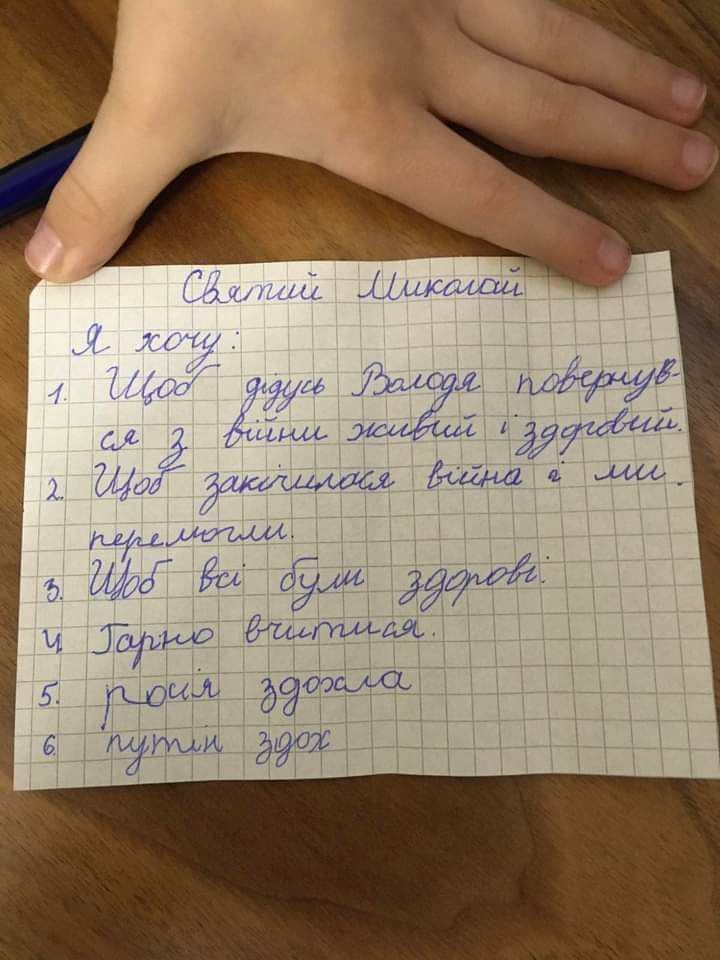 Святий Миколай
Я хочу:
1. Щоб дідусь Володя повернув-
ся з війни живий і здоровий.
2. Щоб закічилася війна і ми
перемогли.
3. Щоб всі були здорові.
4 Гарно вчитися.
5. росія здохла
6. путін здох